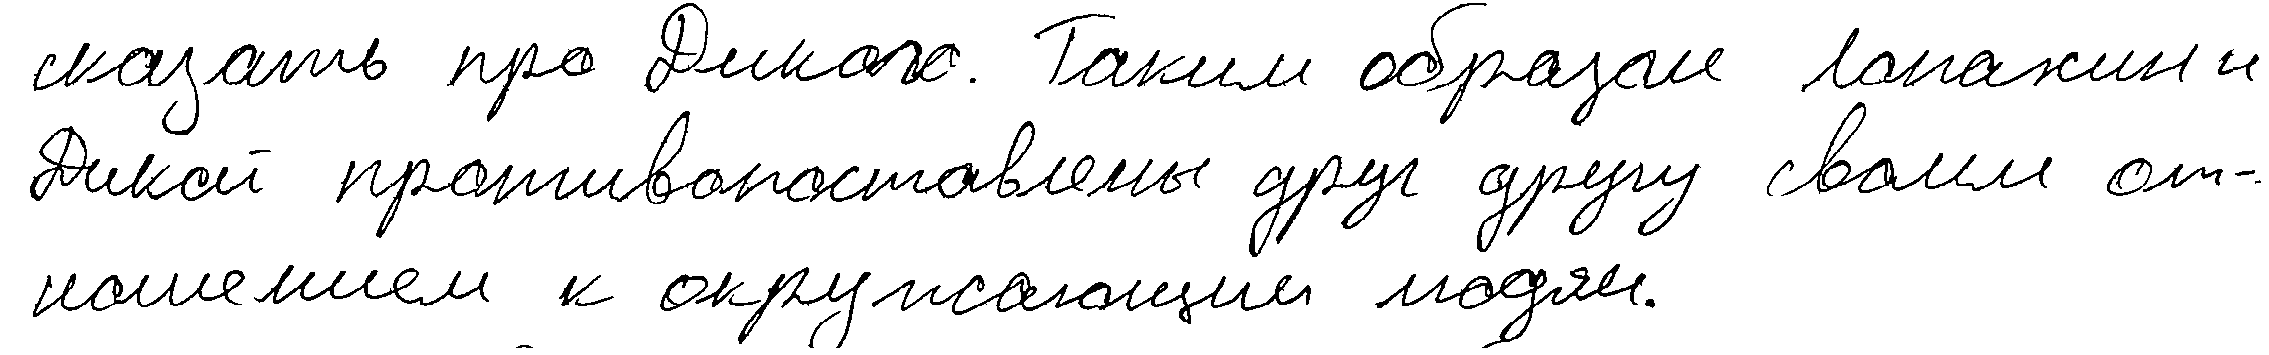 сказать про Дикого. Таким образом Лопахин и
Дикой противопоставлены друг другу своим от-
ношением к окружающим людям.